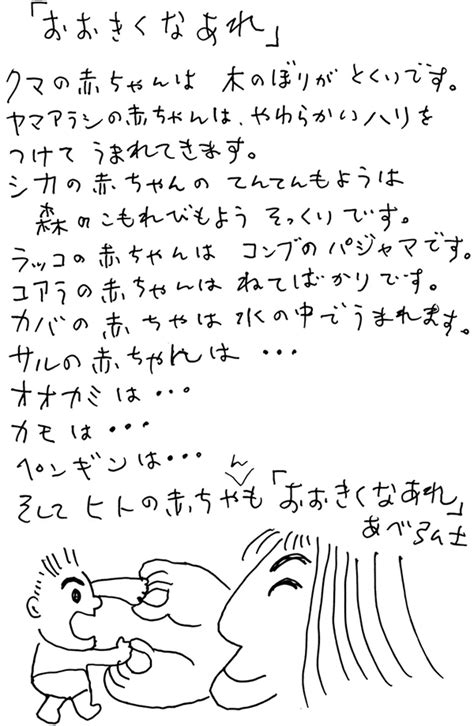 「おおきくなあれ」
クマの赤ちゃんは 木のぼりが とくいです。
ヤマアラシの赤ちゃんは、やわらかいハリを
つけて うまれてきます。
シカの赤ちゃんの てんてんもようは
森のこもれびもよう そっくりです。
ラッコの赤ちゃんは コンブのパジャマです。
コアラの赤ちゃんは ねてばかりです。
カバの赤ちゃは 水の中でうまれます。
サルの赤ちゃんは・・・
オオカミは・・・
カモは・・・
ペンギンは・・・
そして ヒトの赤ちゃんも「おおきくなあれ」
あべ弘士